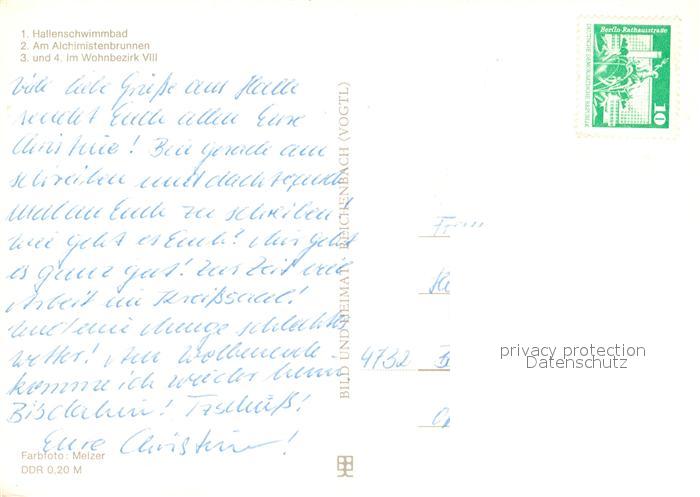 1. Hallenschwimmbad
2. Am Alchimistenbrunnen
3. und 4. Im Wohnbezirk VIII
Viele liebe Grüße aus Halle
sendet Euch allen Eure
Christine! Bin gerade am
schreiben und dachte
mal an Euch zu schreiben!
Wie geht es Euch? Mir geht
es ganz gut! Zur Zeit viel
Arbeit im Kreißsaal!
Und eine Menge schlechtes
Wetter! Am Wochenende
komme ich wieder heim
Bis dahin! Tschüß!
Eure Christine!
Farbfoto: Melzer
DDR 0,20 M
BILD UND HEIMAT, REICHENBACH (VOGTL)
Berlin-Rathausstraße
DEUTSCHE DEMOKRATISCHE REPUBLIK
10
4732
privacy protection
Datenschutz